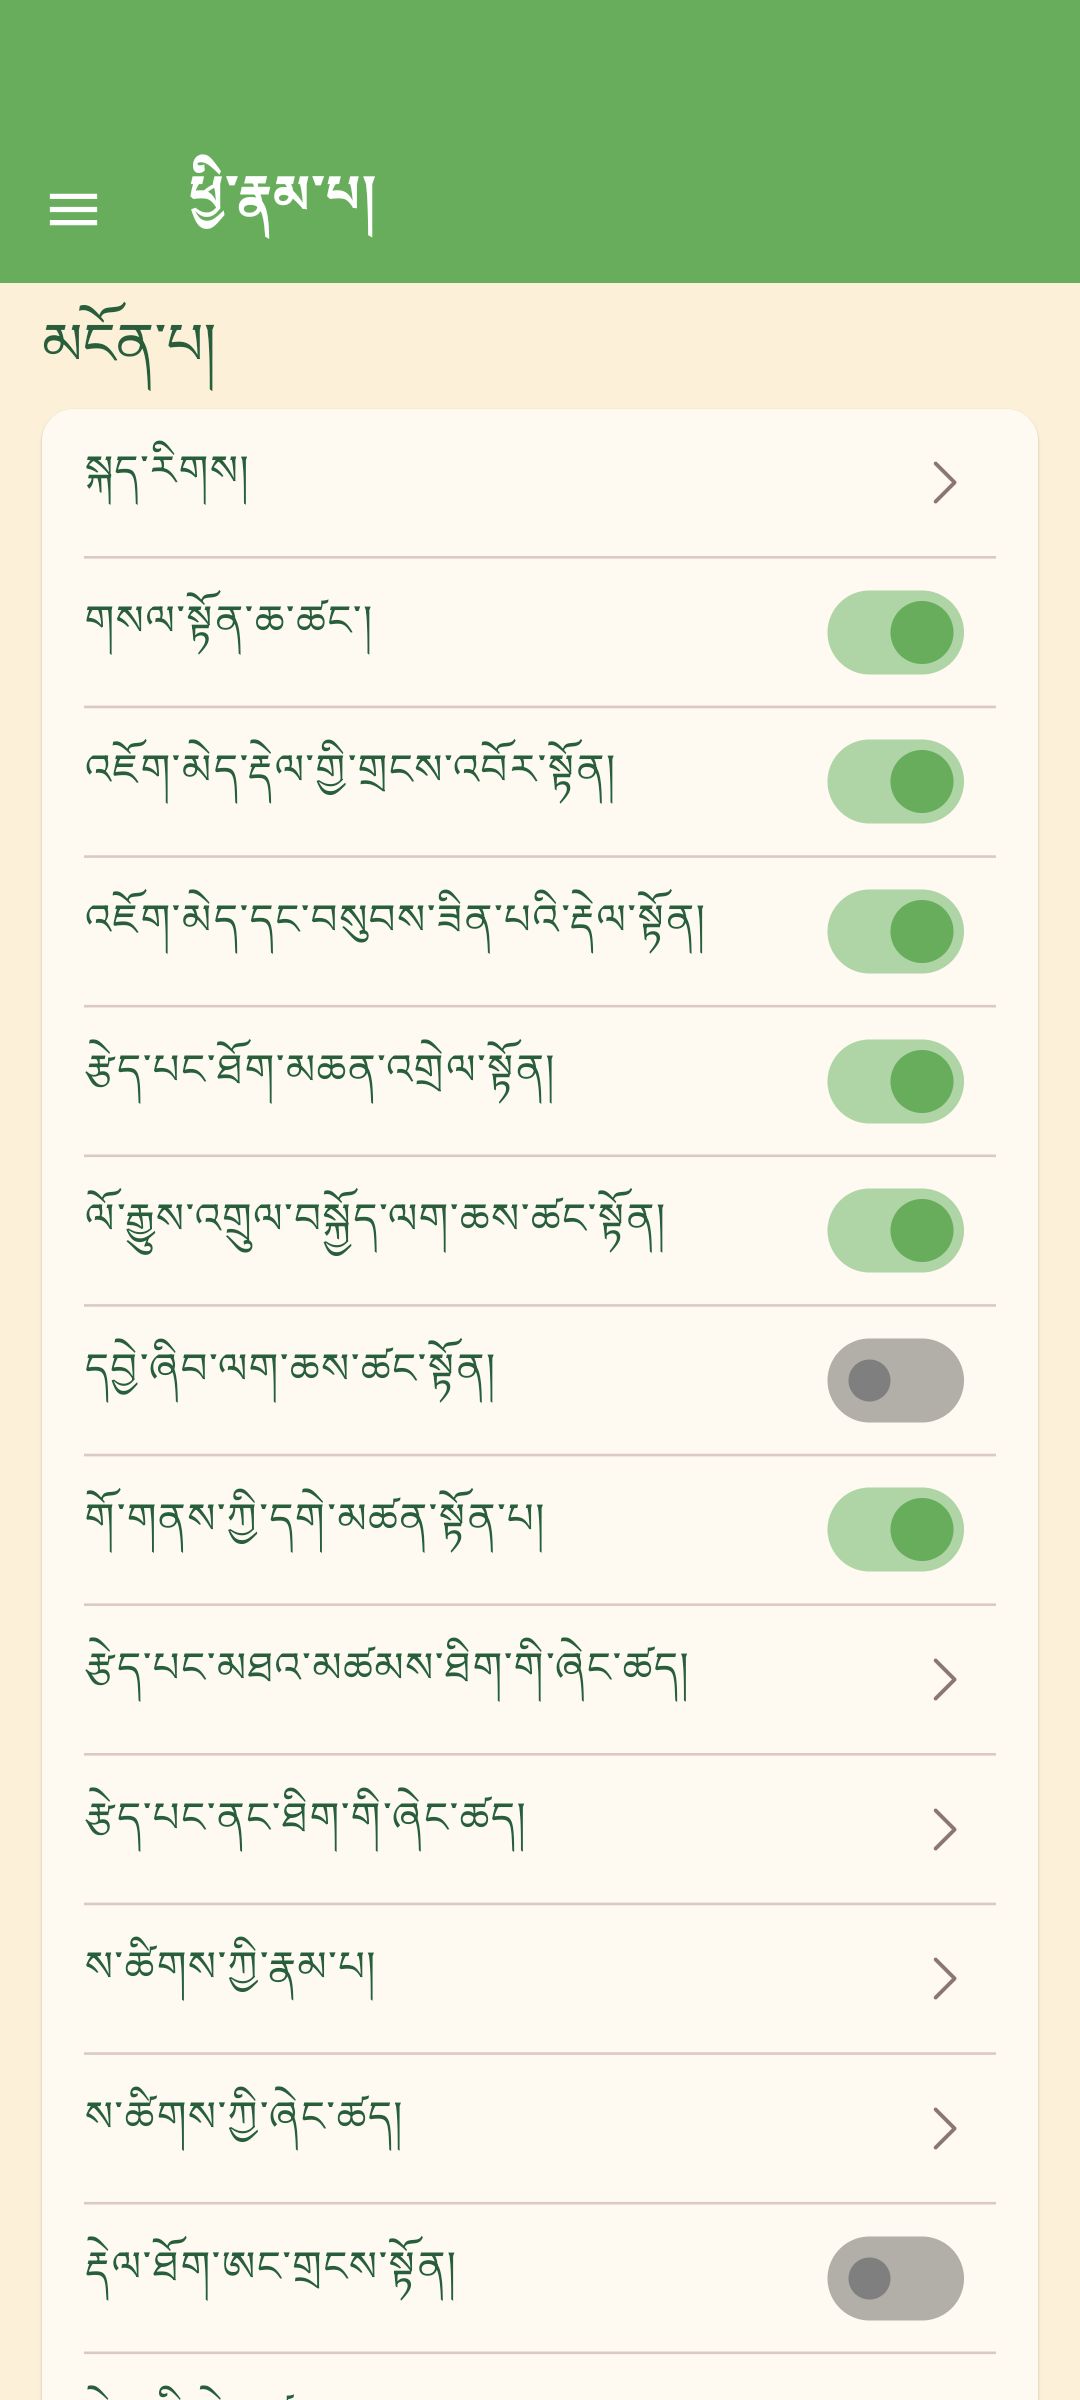 ཕྱི་རྣམ་པ།
མངོན་པ།
སྐད་རིགས།
གསལ་སྟོན་ཆ་ཚང་།
འཇོག་མེད་རྡེལ་གྱི་གྲངས་འབོར་སྟོན།
འཇོག་མེད་དང་བསུབས་ཟིན་པའི་རྡེལ་སྟོན།
རྩེད་པང་ཐོག་མཆན་འགྲེལ་སྟོན།
ལོ་རྒྱུས་འགྲུལ་བསྐྱོད་ལག་ཆས་ཚང་སྟོན།
དབྱེ་ཞིབ་ལག་ཆས་ཚང་སྟོན།
གོ་གནས་ཀྱི་དགེ་མཚན་སྟོན་པ།
རྩེད་པང་མཐའ་མཚམས་ཐིག་གི་ཞེང་ཚད།
རྩེད་པང་ནང་ཐིག་གི་ཞེང་ཚད།
ས་ཚིགས་ཀྱི་རྣམ་པ།
ས་ཚིགས་ཀྱི་ཞེང་ཚད།
རྡེལ་ཐོག་ཨང་གྲངས་སྟོན།